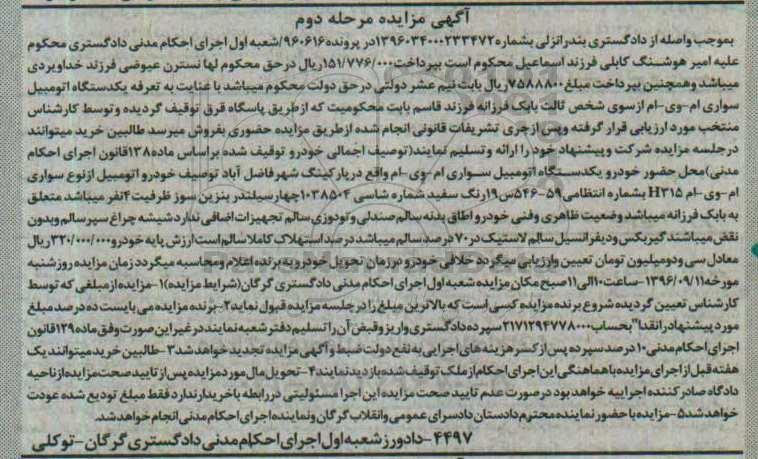 آگهی مزایده مرحله دوم
بموجب واصله از دادگستری بندرانزلی بشماره ۱۳۹۶۰۳۴۰۰۰۲۳۳۴۷۲در پرونده ۹۶۰۶۱۶/شعبه اول اجرای احکام مدنی دادگستری محکوم
علیه امیر هوشنگ کابلی فرزند اسماعیل محکوم است بپرداخت ۱۵۱/۷۷۶/۰۰۰ریال در حق محکوم لها نسترن عیوضی فرزند خداویردی
میباشد وهمچنین بپرداخت مبلغ ۷۵۸۸۸۰۰ریال بابت نیم عشر دولتی در حق دولت محکوم میباشد با عنایت به تعرفه یکدستگاه اتومبیل
سواری ام-وی-ام ازسوی شخص ثالث بابک فرزانه فرزند قاسم بابت محکومیت که از طریق پاسگاه قرق توقیف گردیده و توسط کارشناس
منتخب مورد ارزیابی قرار گرفته وپس از جری تشریفات قانونی انجام شده از طریق مزایده حضوری بفروش میرسد طالبین خرید میتوانند
در جلسه مزایده شرکت و پیشنهاد خود را ارائه و تسلیم نمایند(توصیف اجمالی خودرو توقیف شده براساس ماده۱۳۸قانون اجرای احکام
مدنی)محل حضور خودرو یکدستگاه اتومبیل سواری ام-وی-ام واقع در پارکینگ شهر فاضل آباد توصیف خودرو اتومبیل از نوع سواری
ام-وی-ام H۳۱۵ بشماره انتظامی ۵۹-۵۴۶س۱۹رنگ سفید شماره شاسی ۱۰۳۸۵۰۴چهار سیلندر بنزین سوز ظرفیت ۴نفر میباشد متعلق
به بابک فرزانه میباشد وضعیت ظاهری وفنی خودرو اطاق بدنه سالم صندلی و تودوزی سالم تجهیزات اضافی ندارد شیشه چراغ سپر سالم وبدون
نقض میباشند گیربکس و دیفرانسیل سالم لاستیک در۷۰ درصد سالم میباشد درصد استهلاک کاملا سالم است ارزش پایه خودرو ۳۲۰/۰۰۰/۰۰۰ریال
معادل سی ودومیلیون تومان تعیین وارزیابی میگردد خلافی خودرو در زمان تحویل خودرو به برنده اعلام ومحاسبه میگردد زمان مزایده روزشنبه
مورخه ۱۳۹۶/۰۹/۱۱-ساعت ۱۰الی ۱۱صبح مکان مزایده شعبه اول اجرای احکام مدنی دادگستری گرگان(شرایط مزایده)۱-مزایده از مبلغی که توسط
کارشناس تعیین گردیده شروع برنده مزایده کسی است که بالاترین مبلغ را در جلسه مزایده قبول نماید۲-برنده مزایده می بایست ده درصد مبلغ
مورد پیشنهاد را نقدا"بحساب ۲۱۷۱۲۹۴۷۷۸۰۰۰سپرده دادگستری واریز وقبض آن را تسلیم دفتر شعبه نمایند در غیر این صورت وفق ماده۱۲۹قانون
اجرای احکام مدنی ۱۰درصد سپرده پس از کسر هزینه های اجرایی به نفع دولت ضبط و آگهی مزایده تجدید خواهد شد ۳-طالبین خرید میتوانند یک
هفته قبل از اجرای مزایده با هماهنگی این اجرای احکام از ملک توقیف شده بازدید نمایند۴-تحویل مال مورد مزایده پس از تایید صحت مزایده از ناحیه
دادگاه صادر کننده اجراییه خواهد بود در صورت عدم تایید صحت مزایده این اجرا مسئولیتی در رابطه با خریدار ندارد فقط مبلغ تودیع شده عودت
خواهد شد ۵-مزایده با حضور نماینده محترم دادستان دادسرای عمومی وانقلاب گرگان و نماینده اجرای احکام مدنی انجام خواهد شد.
۴۴۹۷-دادورز شعبه اول اجرای احکام مدنی دادگستری گرگان-توکلی